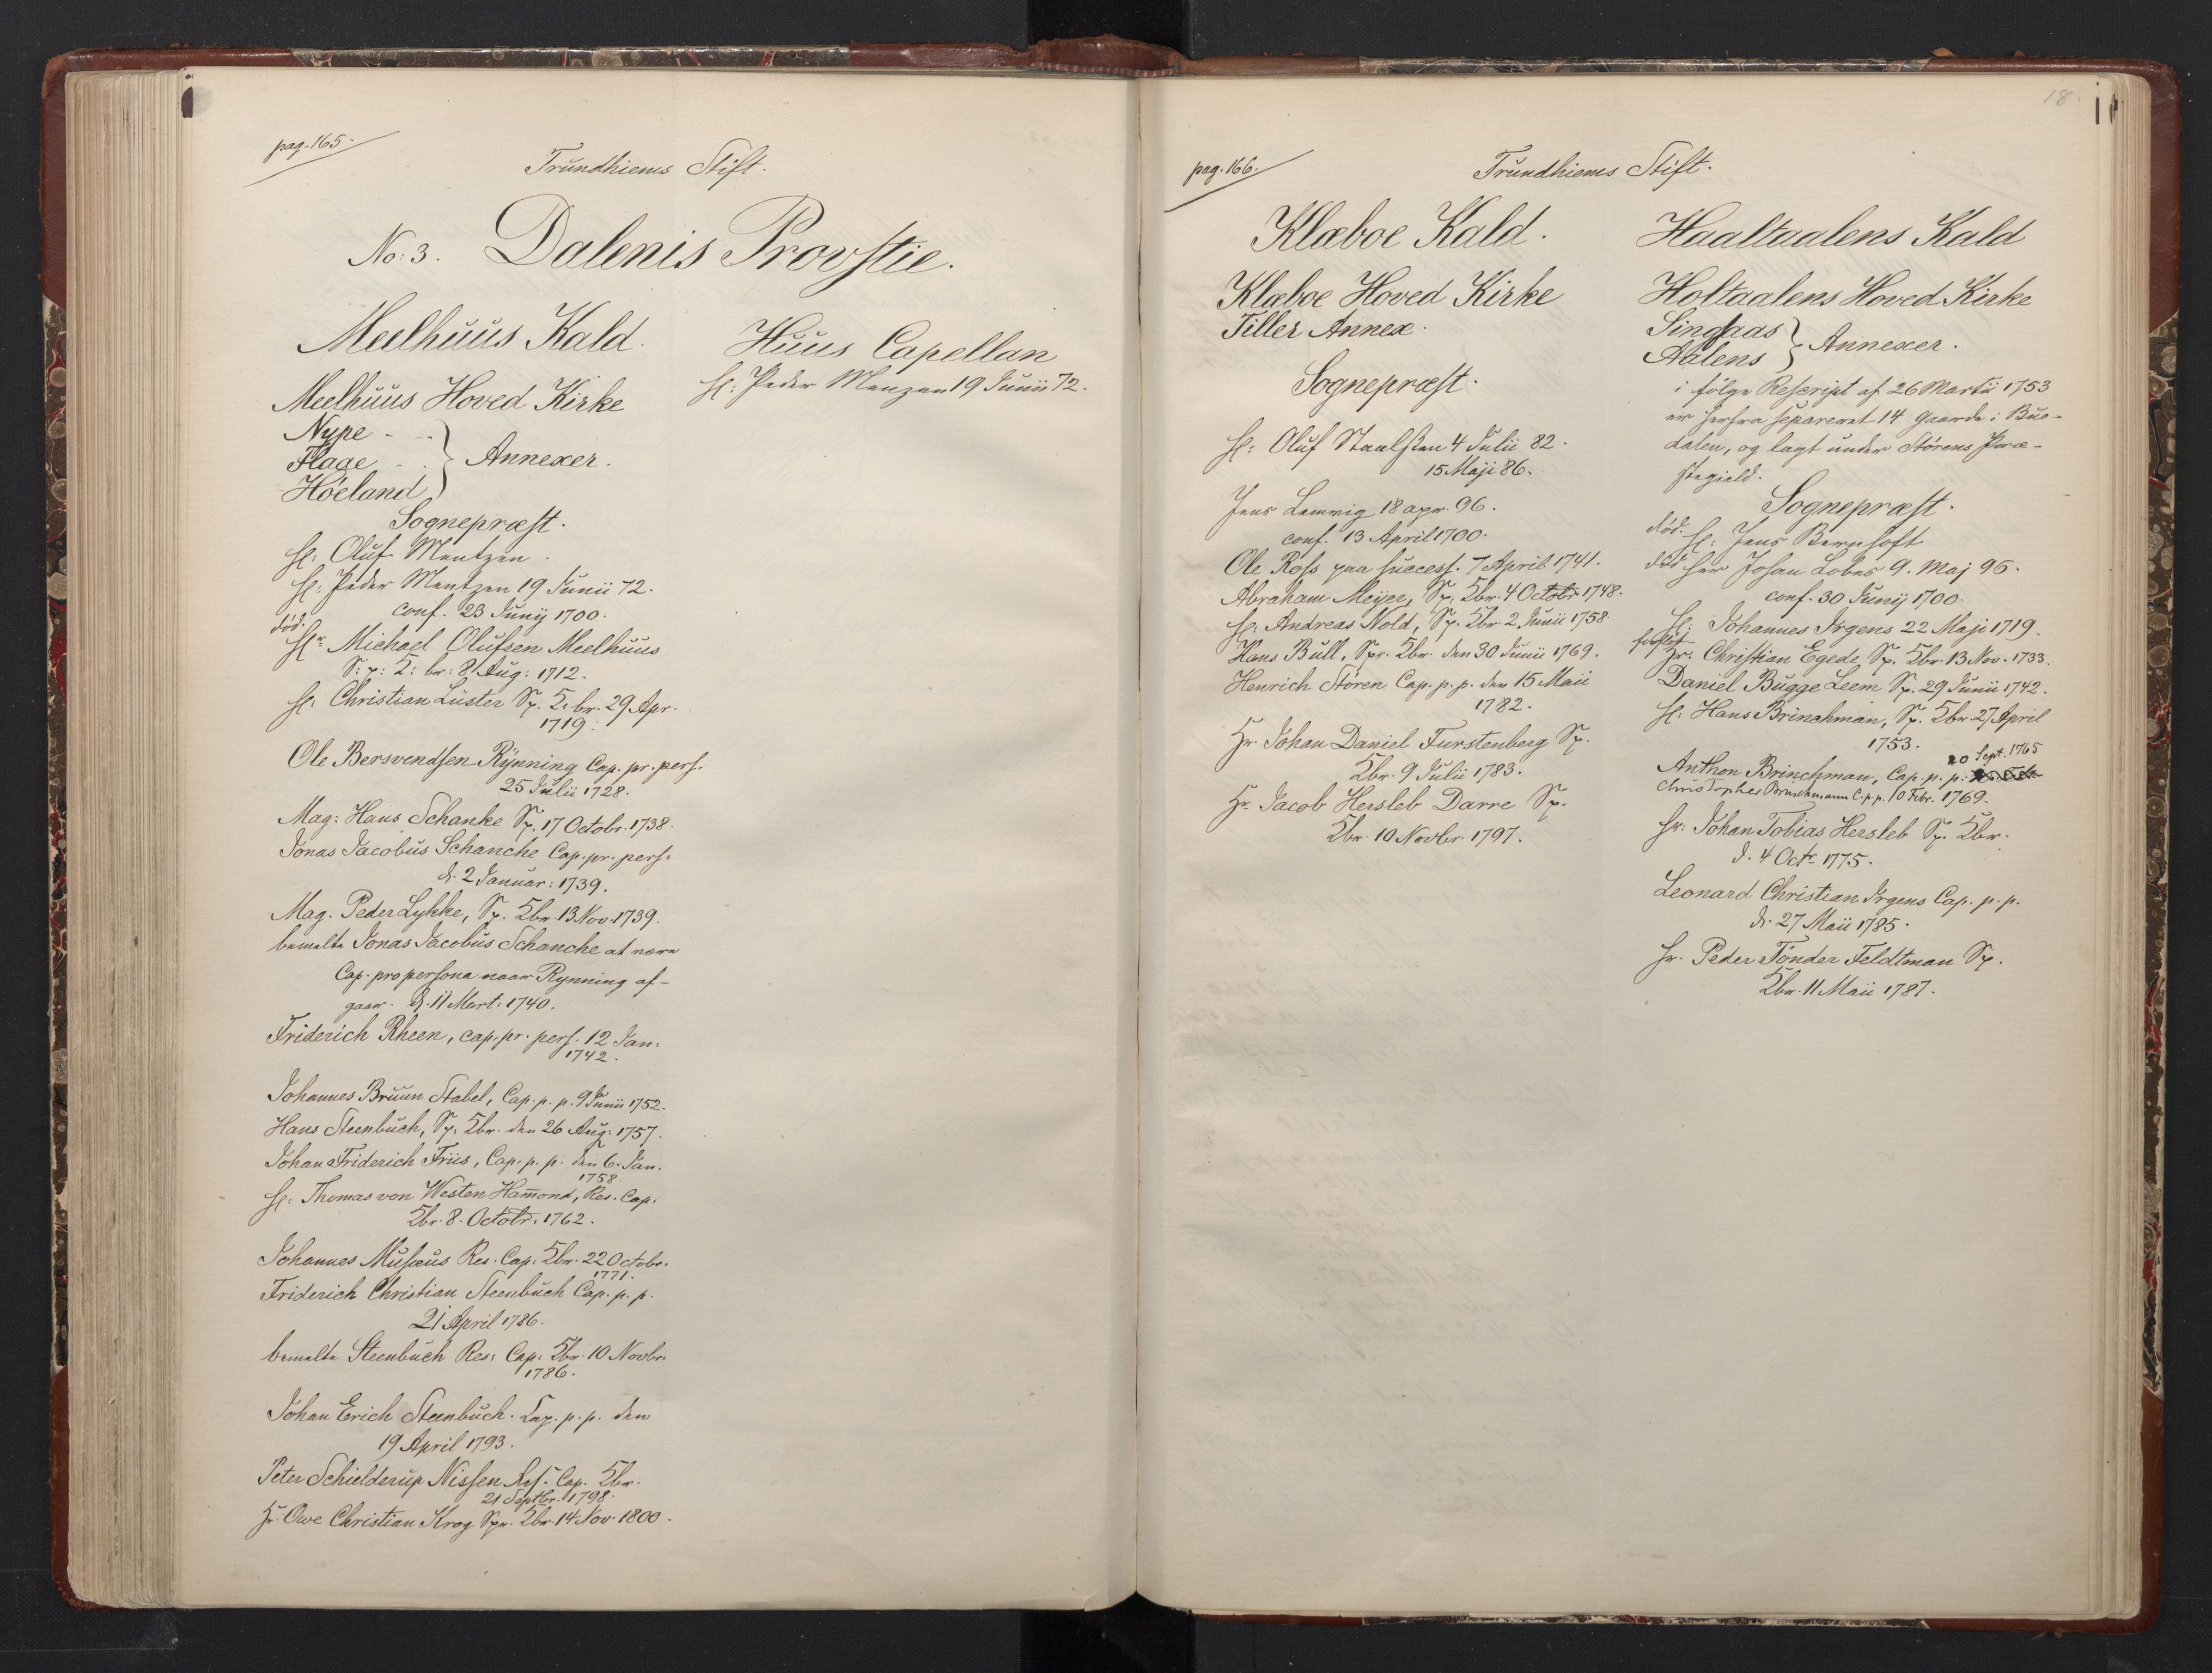 pag. 165.
Trundhiems Stift.
No: 3. Dalenis Provstie.
Meelhuus Kald.
Meelhuus Hoved Kirke
Nype - -
Flaae - - } Annexer.
Höeland
Sognepræst.
H: Oluf Mentzen.
H: Peder Mentzen 19 Junii 72.
conf. 23 Junij 1700.
död.
Hr Michael Olufsen Meelhuus
S: p: Z: br: 8 Aug: 1712.
H: Christian Lüster Sp. Z: br. 29 Apr.
1719.
Ole Bersvendsen Rÿnning Cap. pr. pers.
25 Julii 1728.
Mag: Hans Schanke Sp. 17 Octobr. 1738.
Jonas Jacobus Schanche Cap. pr. pers.
d. 2 Januar: 1739.
Mag. Peder Lykke, Sp. Zbr. 13 Nov. 1739.
bemelte Jonas Jacobus Schanche at være
Cap. pro persona naar Rynning af-
gaar. d. 11 Mart. 1740.
Friderich Rheen, cap. pr. pers. 12 Jan.
1742.
Johannes Bruun Stabel, Cap. p. p. 9 Junii 1752.
Hans Steenbuch, Sp. Zbr. den 26 Aug. 1757.
Johan Friderich Friis, Cap. p. p. den 6. Jan.
1758.
H: Thomas von Westen Ham̄ond, Res. Cap.
Zbr. 8. Octobr. 1762.
Johannes Musæus Res. Cap. Zbr. 22 Octobr.
1771.
Friderich Christian Steenbuch Cap. p. p.
21 April 1786.
bemelte Steenbuch Res: Cap: Zbr. 10 Novbr.
1786.
Johan Erich Steenbuch. Cap. p. p. den
19 April 1793.
Peter Schielderup Nissen Res. Cap. Zbr.
21 Septbr. 1798.
Hr. Owe Christian Krog Spr. Zbr. 14 Nov. 1800.
Huus Capellan
H: Peder Menzen 19 Junii 72.
18.
pag. 166.
Trundhiems Stift.
Klæboe Kald.
Klæboe Hoved Kirke
Tiller Annex.
Sognepræst.
H: Oluf 4 Julii 82.
15 Maji 86.
Jens Lemvig 18 apr. 96.
conf. 13 April 1700.
Ole Ross paa success. 7 April 1741.
Abraham Meÿer, Sp. Zbr. 4 Octobr 1748.
H: Andreas Nold, Sp. Zbr. 2 Junii 1758.
Hans Bull, Spr. Zbr. den 30 Junii 1769.
Henrich Stören Cap. p. p. den 15 Maii
1782.
Hr. Johan Daniel Furstenberg Sp.
Zbr. 9 Julii 1783.
Hr. Jacob Hersleb Darre Sp.
Zbr. 10 Novbr. 1797.
Haaltaalens Kald
Holtaalens Hoved Kirke
Singsaas
Aalens } Annexer.
i fölge Rescript af 26 Martii 1753
er herfra separeret 14 Gaarde i Bue-
dalen, og lagt under Störens Præ-
stegield.
Sognepræst.
död. H: Jens Bernhoft
död Her Johan Lobes 9. Maj 96.
conf. 30 Junij 1700.
H: Johannes Irgens 22 Maji 1719.
Hr. Christian Egede, Sp. Zbr. 13 Nov. 1733.
Daniel Bugge Leem Sp. 29 Junii 1742.
H: Hans Brinchman, Sp. Zbr. 27 April
1753.
20 Sept. 1765
Anthon Brinchman, Cap. p. p.
Christopher Brinchmann C. p. p. 10 Febr. 1769.
Hr: Johan Tobias Hersleb Sp. Zbr.
d. 4 Octr 1775.
Leonard Christian Irgens Cap. p. p.
d. 27 Maii 1785.
Hr. Peder Tönder Feldtman Sp.
Zbr. 11 Maii 1787.